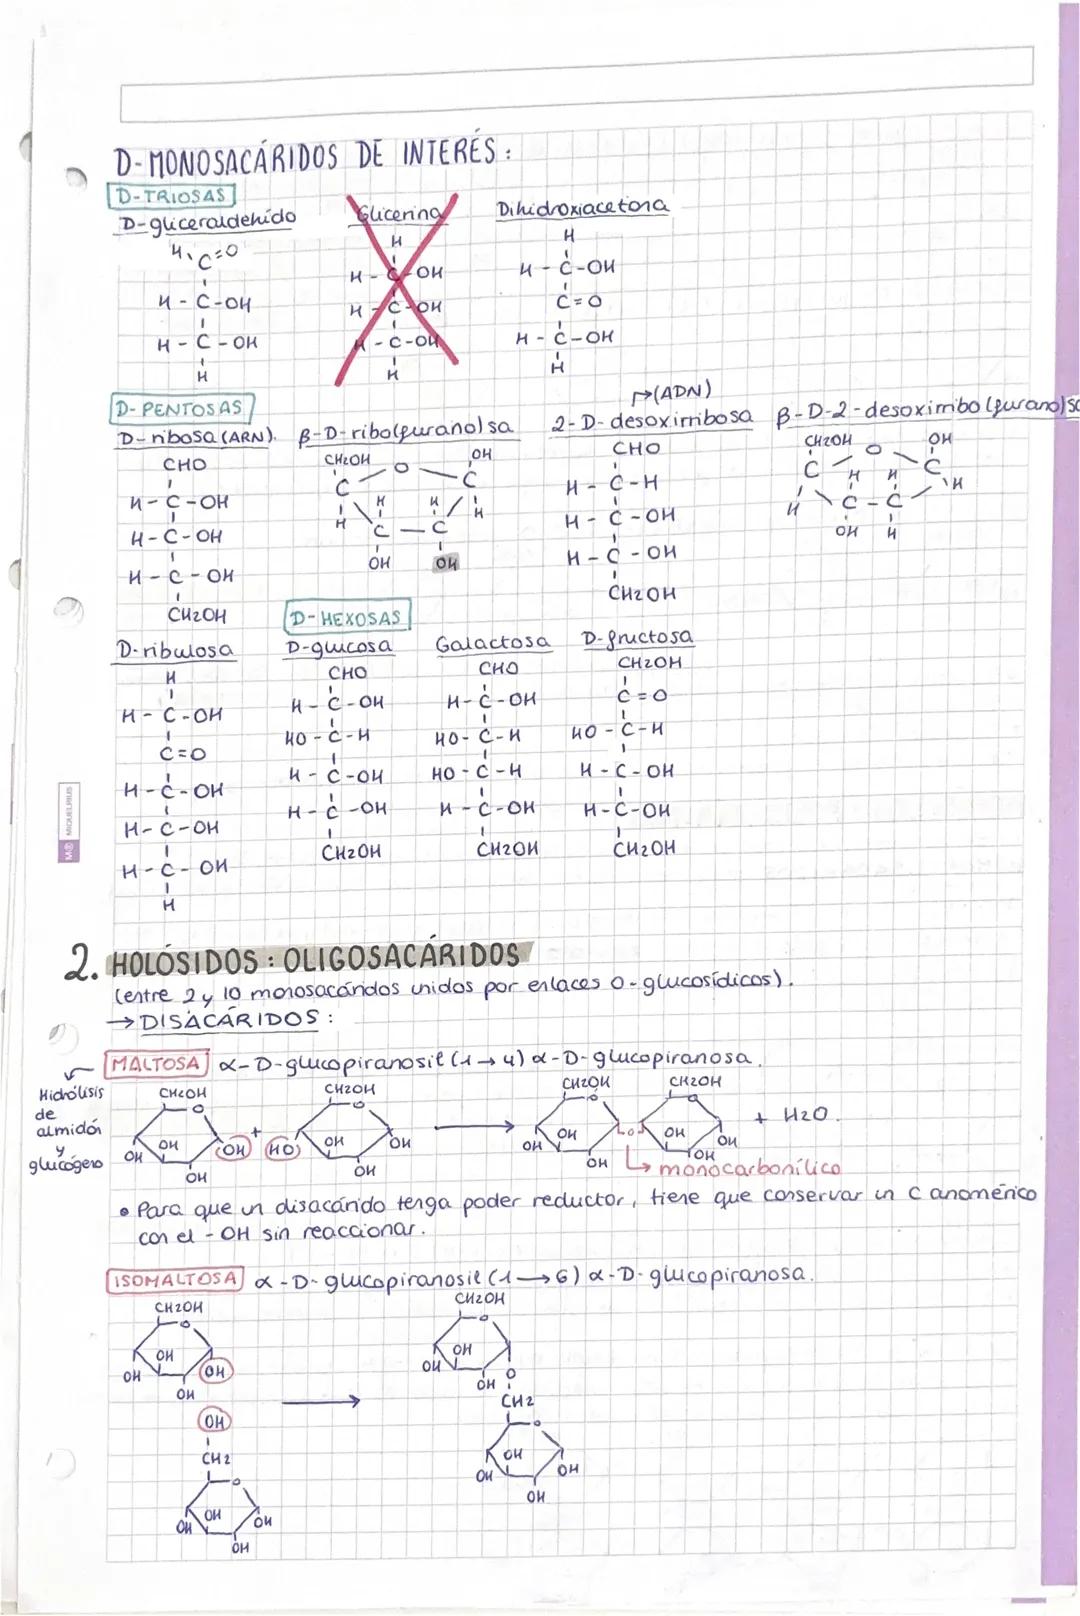 D-MONOSACÁRIDOS DE INTERÉS:
D-TRIOSAS
D-gliceraldehído
Glicerina
Dihidroxiacetona
H
H
H C=O
H-C-OH
H-C-OH
H-C-OH
H-C-OH
C=O
H-C-OH
H-C-OH
H-C-OH
H
H
H
D-PENTOSAS
(ADN)
D-ribosa (ARN).
β-D-ribo(furano)sa
2-D-desoxirribosa
β-D-2-desoxirribo(furano)sa
CHO
H-C-OH
H-C-OH
H-C-OH
CH2OH
CH2OH O OH
C C
H H H H
C-C
OH OH
CHO
H-C-H
H-C-OH
H-C-OH
CH2OH
CH2OH O OH
C H H C
H C-C H
OH H
D-HEXOSAS
D-ribulosa
D-glucosa
Galactosa
D-fructosa
H
H-C-OH
C=O
H-C-OH
H-C-OH
H-C-OH
H
CHO
H-C-OH
HO-C-H
H-C-OH
H-C-OH
CH2OH
CHO
H-C-OH
HO-C-H
HO-C-H
H-C-OH
CH2OH
CH2OH
C=O
HO-C-H
H-C-OH
H-C-OH
CH2OH
M® MIQUELRIUS
2. HOLÓSIDOS: OLIGOSACÁRIDOS
(entre 2 y 10 monosacáridos unidos por enlaces O-glucosídicos).
→ DISACÁRIDOS:
MALTOSA α-D-glucopiranosil (1→4) α-D-glucopiranosa.
Hidrólisis
de
almidón
y
glucógeno
CH2OH CH2OH CH2OH CH2OH
O O O O
OH OH OH + HO OH OH → OH OH O OH OH + H2O.
OH OH OH OH
monocarbonílico
• Para que un disacárido tenga poder reductor, tiene que conservar un C anomérico
con el -OH sin reaccionar.
ISOMALTOSA α-D-glucopiranosil (1→6) α-D-glucopiranosa.
CH2OH
O
OH
OH OH
OH
OH
CH2
O
OH
OH OH
OH
CH2OH
O
OH
OH
OH O
CH2
O
OH
OH OH
OH